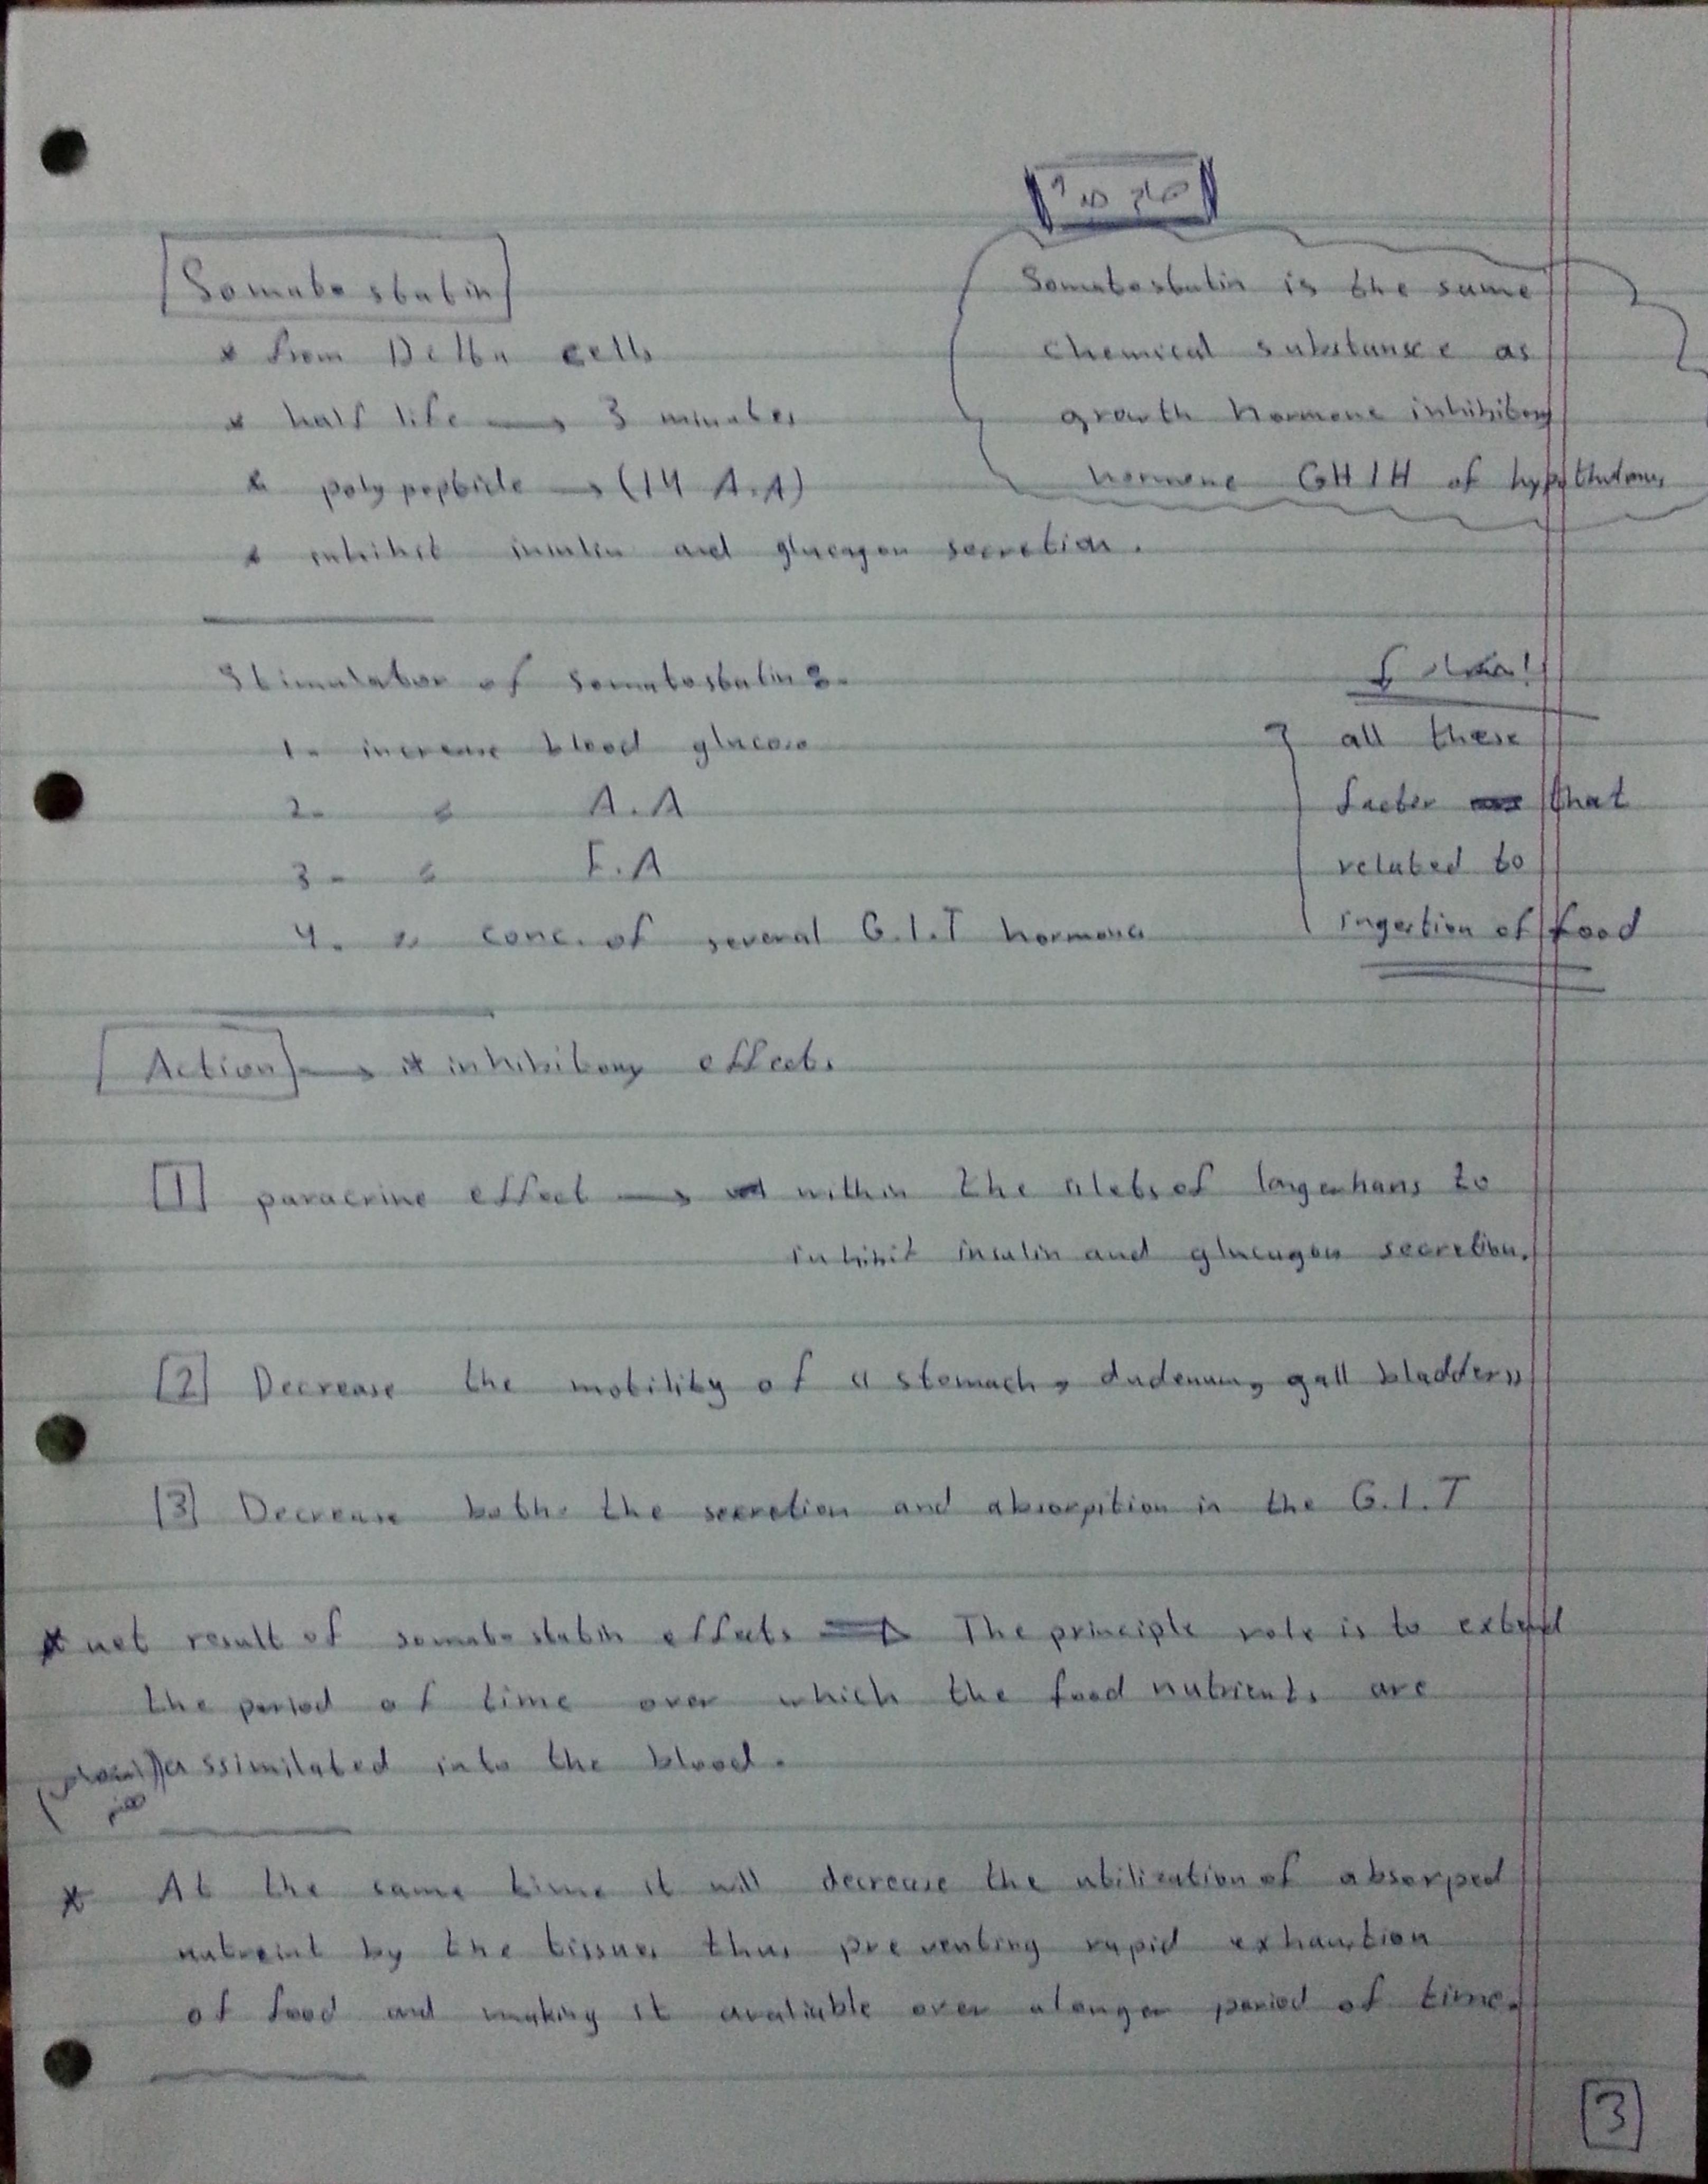 هام جداً
Somatostatin
* from Delta cells
* half life → 3 minutes
* poly peptide → (14 A.A)
* inhibit insulin and glucagon secretion.
Somatostatin is the same
chemical substansce as
growth hormone inhibitory
hormone GHIH of hypothalamus
Stimulator of Somatostatin :-
1- increase blood glucose
2- " A.A
3- " F.A
4- " conc. of several G.I.T hormones
all these
factor that
related to
ingestion of food
Action → * inhibitory effects
[1] paracrine effect → within the islets of langerhans to
inhibit insulin and glucagon secretion.
[2] Decrease the mobility of " stomach, dudenum, gall bladder "
[3] Decrease both the secretion and absorpition in the G.I.T
* net result of somatostatin effects ⇒ The principle role is to extend
the period of time over which the food nutrients are
assimilated into the blood.
* At the same time it will decrease the utilization of absorped
nutreint by the tissues thus preventing rapid exhaustion
of food and making it avaliable over a longer period of time.
3